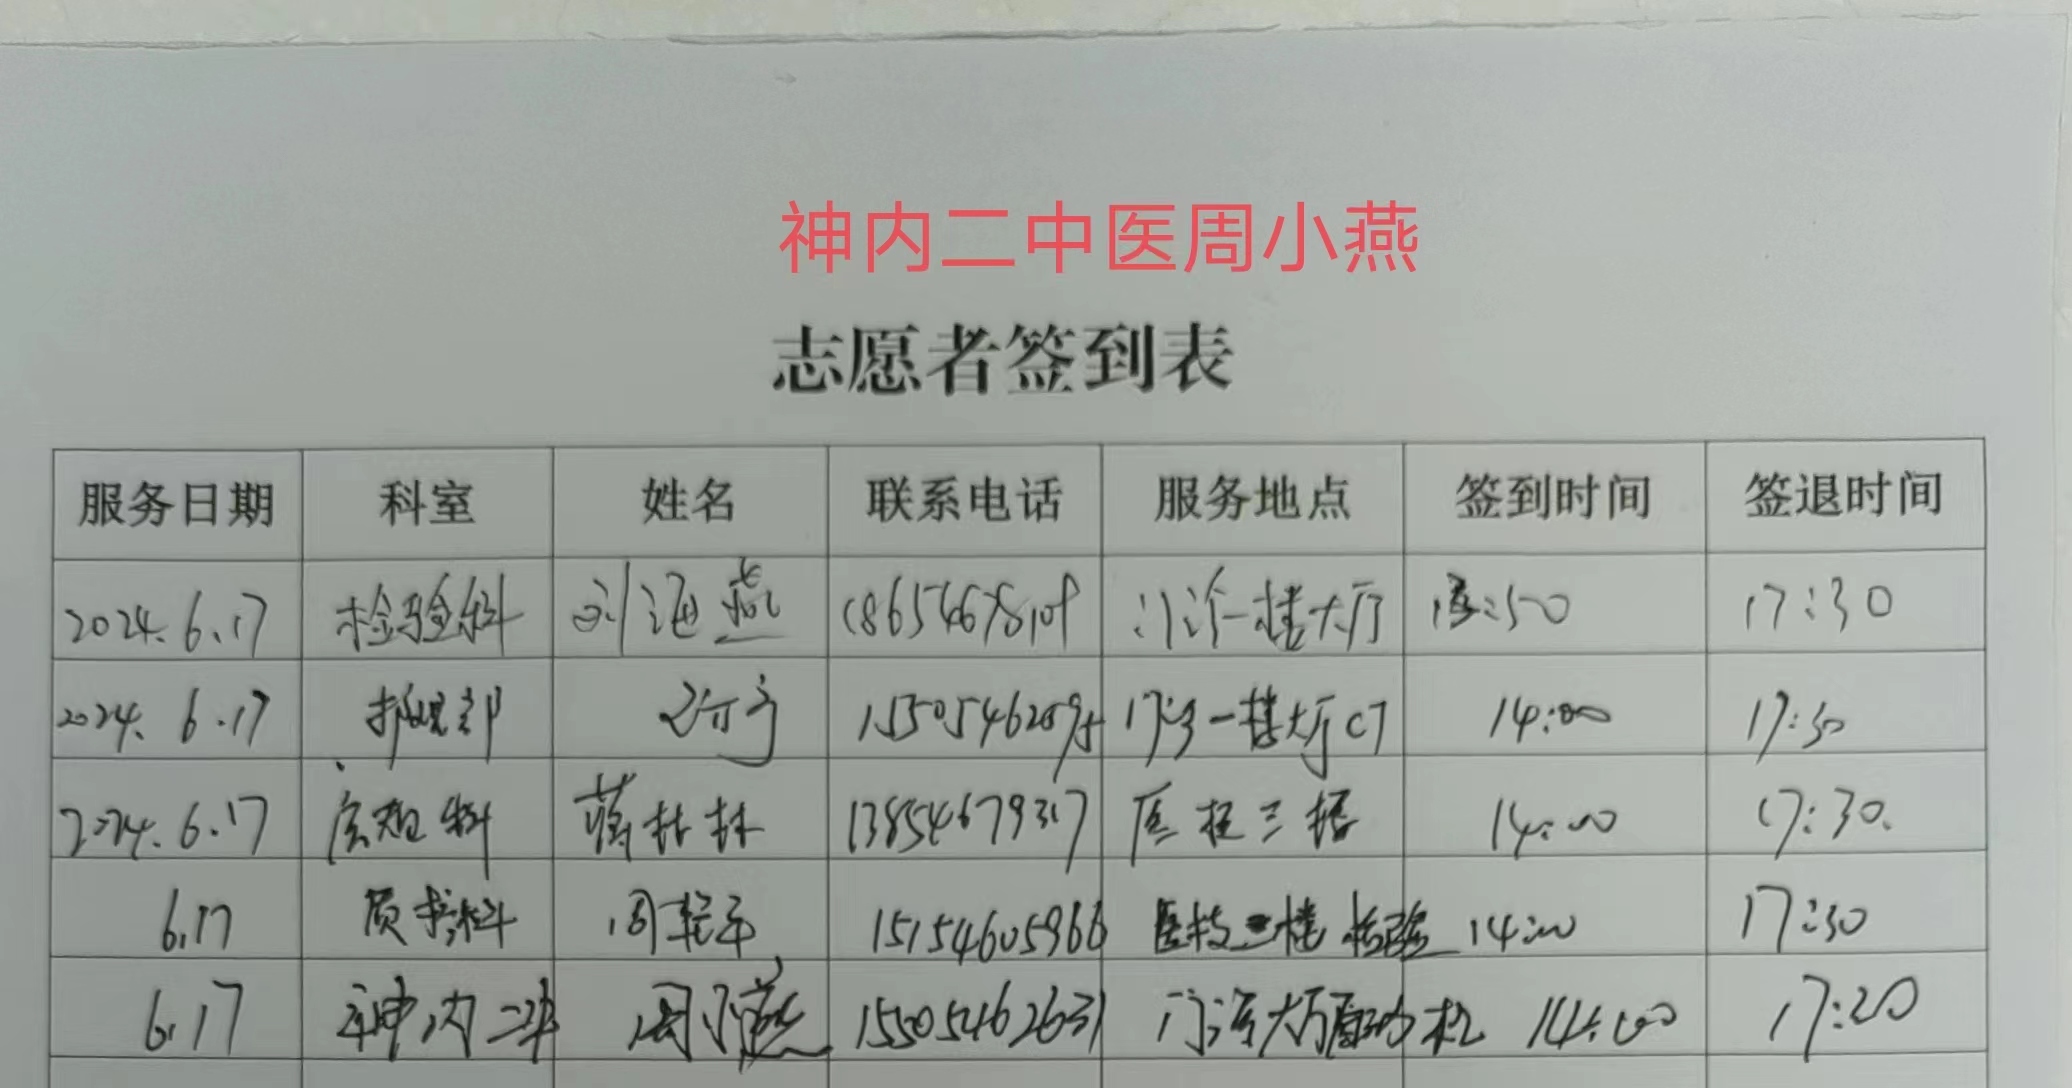 神内二中医周小燕
志愿者签到表
服务日期 科室 姓名 联系电话 服务地点 签到时间 签退时间
2024.6.17 检验科 刘海燕 门诊一楼大厅 :50 17:30
2024.6.17 护理部 门诊一楼大厅CT 14:00 17:30
2024.6.17 病理科 蒋林林 13854679317 医技三楼 14:00 17:30.
6.17 质控科 周 15154605966 医技三楼 检验 14:00 17:30
6.17 神内二中 周小燕 15505462631 门诊大厅 机 14:00 17:20